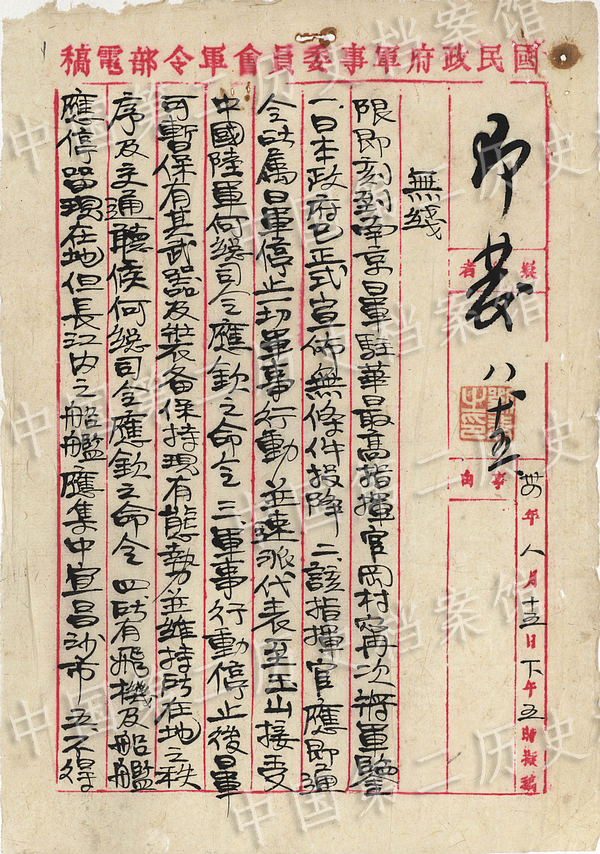 國民政府軍事委員會軍令部電稿
卅四年八月十五日下午五時擬稿
事由
即發 八、十五
無綫
限即刻到南京日軍駐華最高指揮官岡村寧次將軍鑒
一、日本政府已正式宣佈無條件投降 二、該指揮官應即通
令所屬日軍停止一切軍事行動並速派代表至玉山接受
中國陸軍何總司令應欽之命令 三、軍事行動停止後日軍
可暫保有其武器及裝备保持現有態勢並維持所在地之秩
序及交通聽候何總司令應欽之命令 四、所有飛機及船艦
應停留現在地但長江內之船艦應集中宜昌沙市 五、不得
中国第二历史档案馆